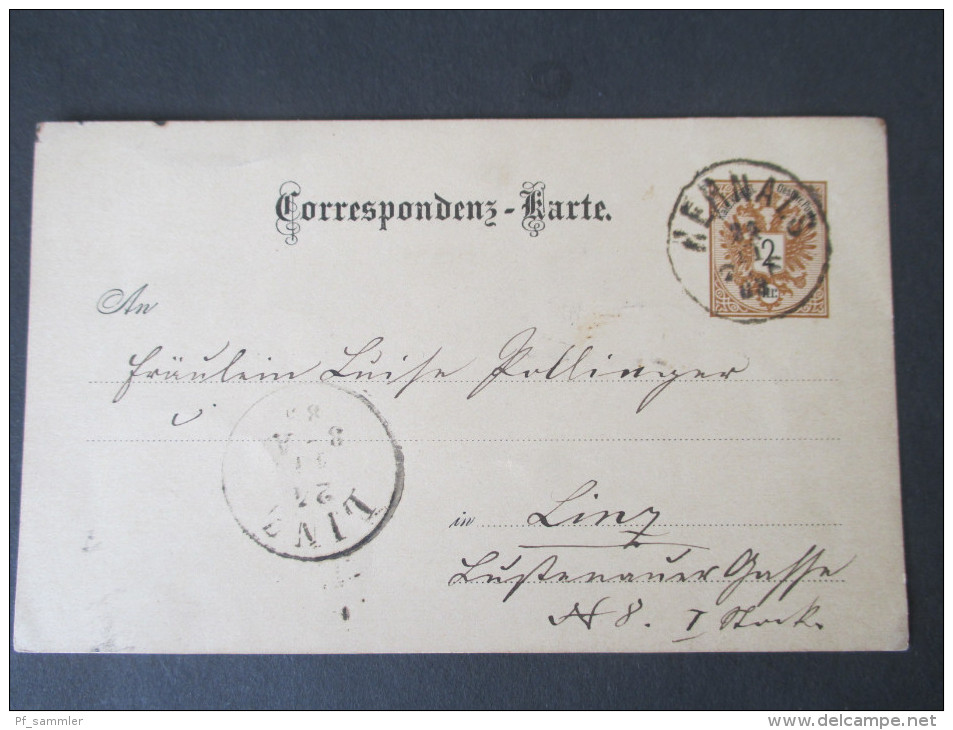 Correspondenz-Karte.
HERNALS
2
An
Fräulein Luise Pollinger
in Linz
Lustenauer Gasse
N 8. I Stock.
LINZ
24
Pf_sammler
www.delcampe.net